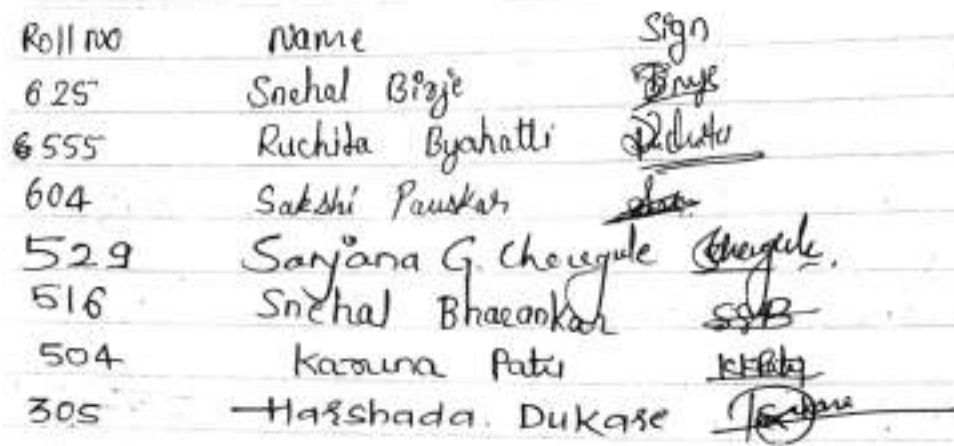 Roll no Name Sign
625 Snehal Birje Birje
555 Ruchita Byahatti Ruchita
604 Sakshi Pauskar
529 Sanjana G. Chougule Chougule.
516 Snehal Bharankar SSB
504 Karuna Patil K.K.Patil
305 Harshada. Dukare